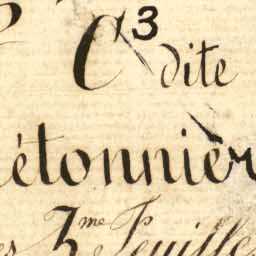 C 3 dite
étonnièr
es 3me Feuille